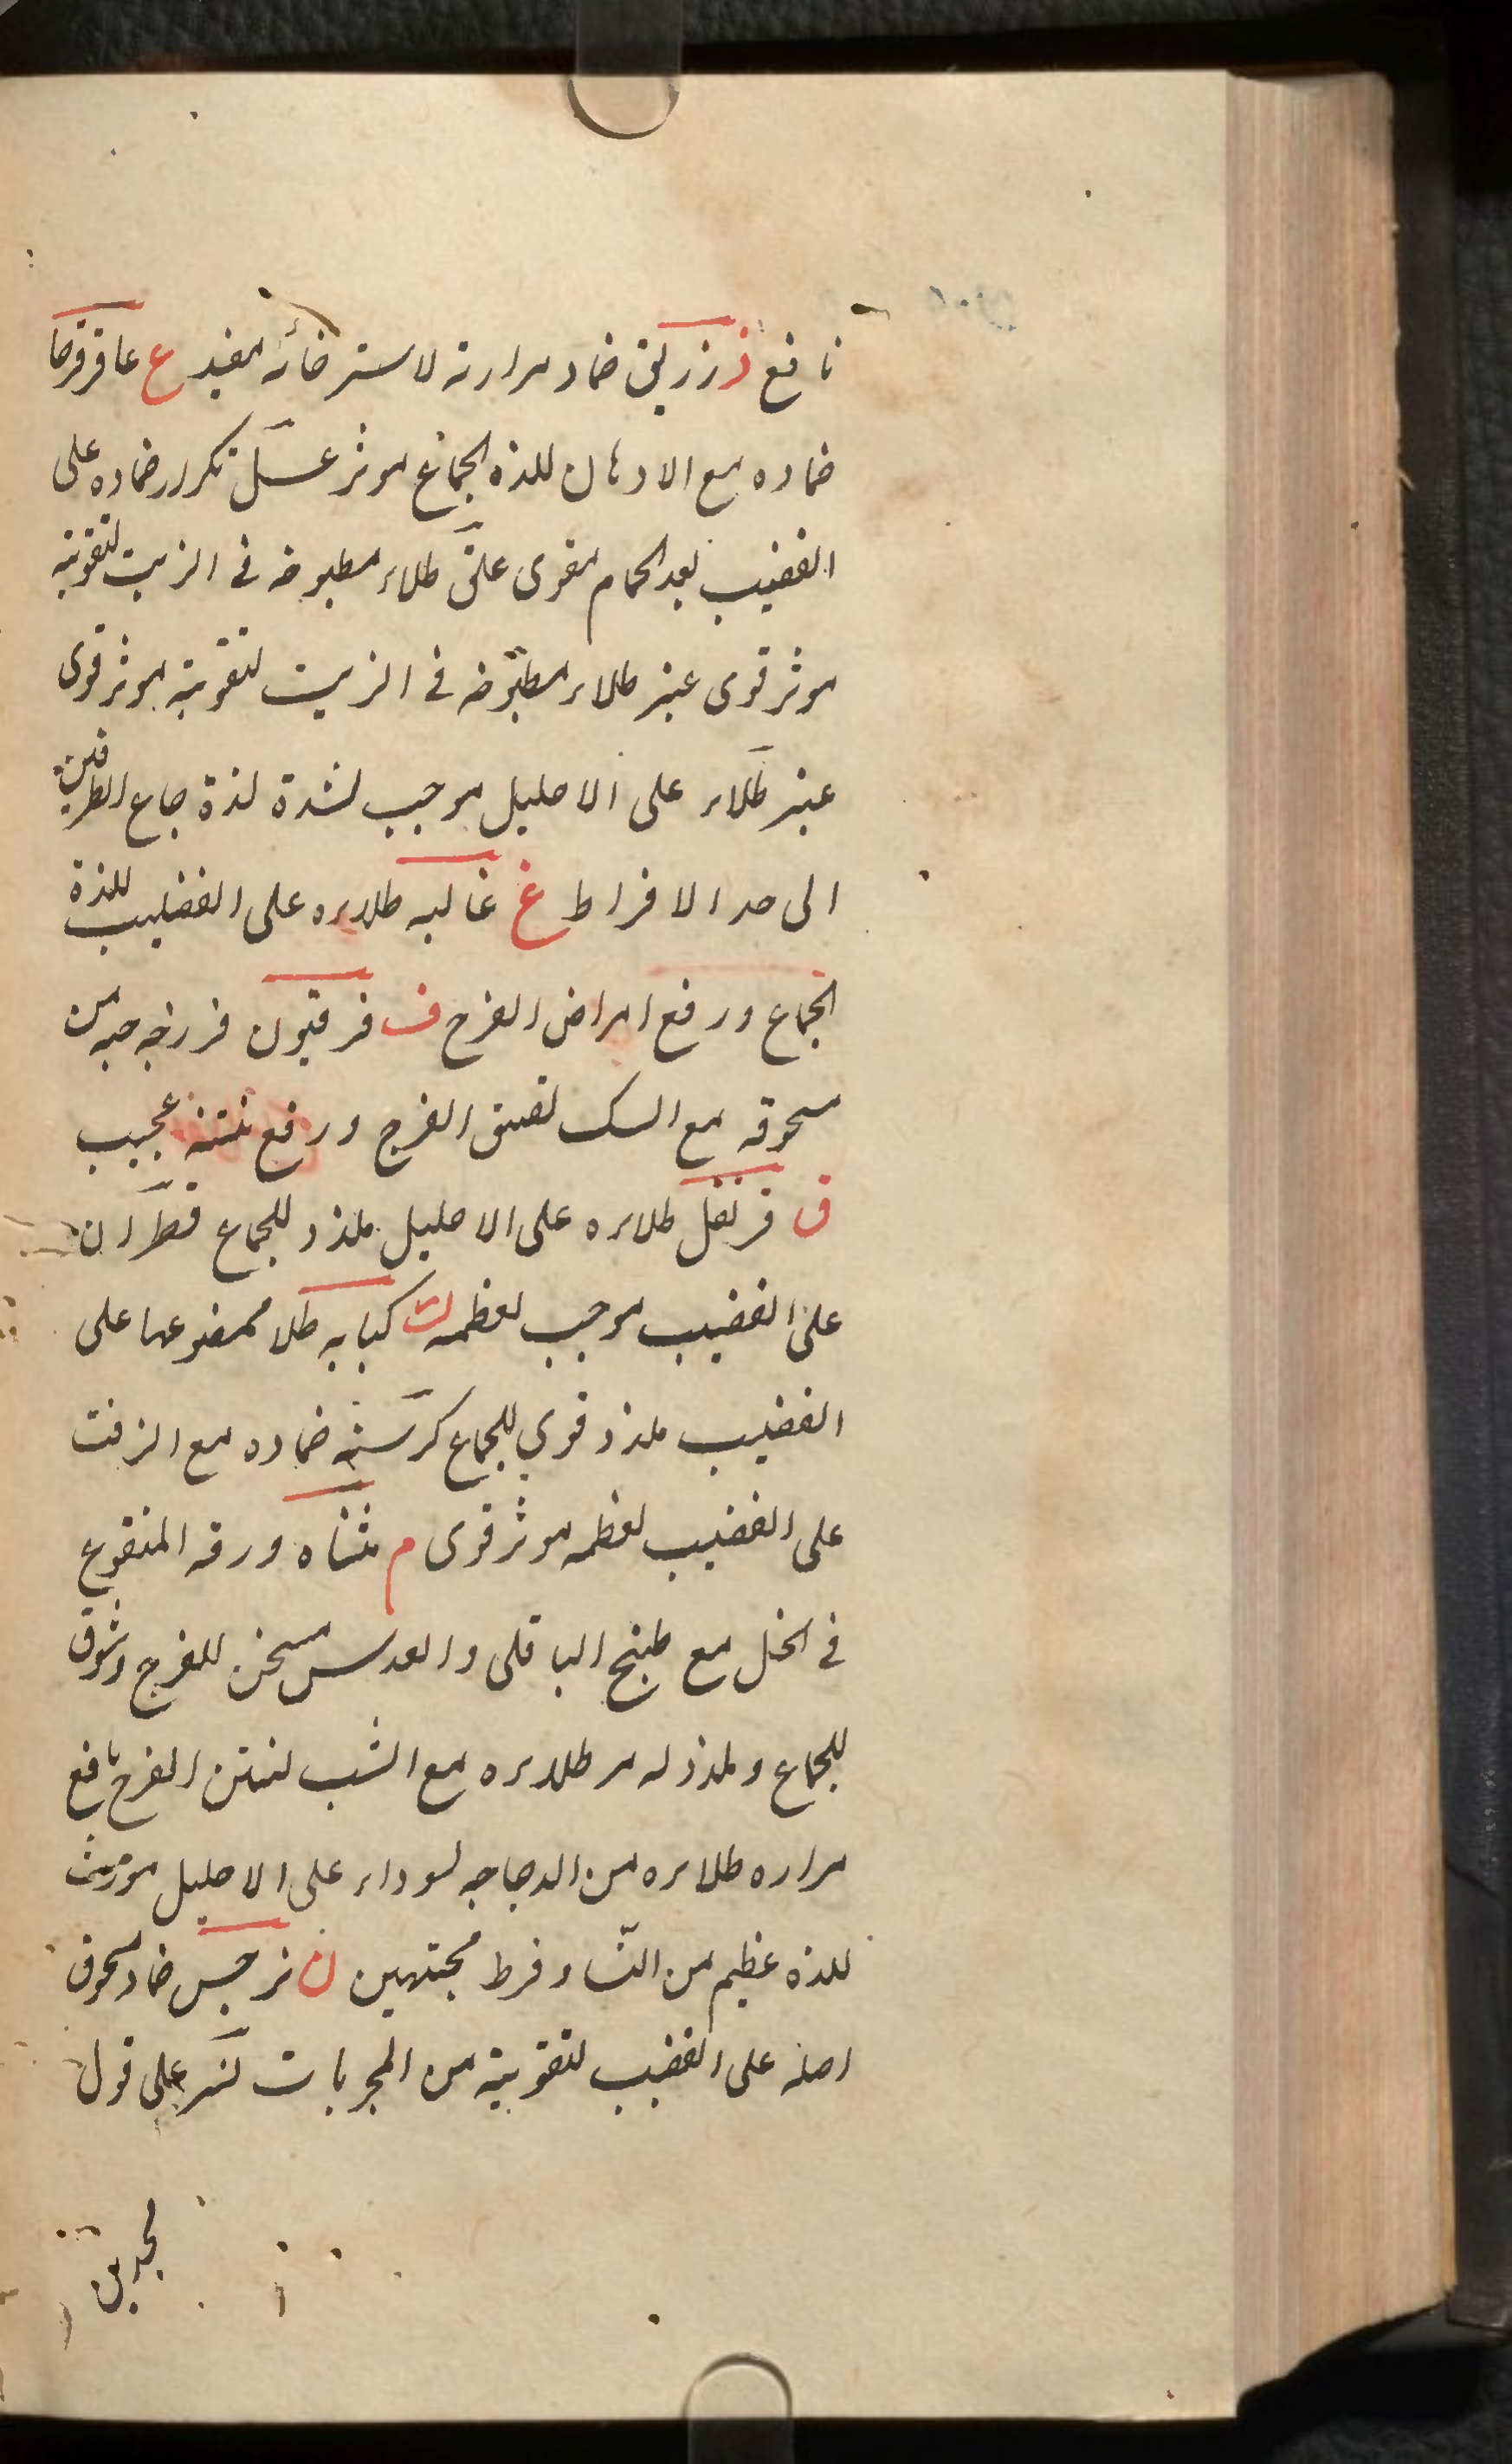 نافع ذ زرنیخ ضماد مرارته لاسترخائه مفید ع عاقرقرحا
ضماده مع الادهان للذه الجماع موثر عسل تکرار ضماده علی
القضیب بعد الحمام مقوی علق طلاء مطبوخه فی الزیت لتقویته
موثر قوی عنبر طلاء مطبوخه فی الزیت لتقویته موثر قوی
عنبر طلاء علی الاحلیل موجب لشدة لذة جماع الطرفین
الی حد الافراط غ غالیه طلاءه علی القضیب للذة
الجماع ورفع امراض الفرج ف فرفیون فرزجه حبه من
سحوقه مع السک لضیق الفرج ورفع نتنه عجیب
ق قرنفل طلاءه علی الاحلیل ملذذ للجماع قطران
علی القضیب موجب لعظمه ک کبابه طلا ممضوعها علی
القضیب ملذذ قوی للجماع کرسنه ضماده مع الزفت
علی القضیب لعظمه موثر قوی م مثناه ورقه المنقوع
فی الخل مع طبخ الباقلی والعدس مسخن للفرج وشوق
للجماع وملذذ له مر طلاءه مع الشب لنتن الفرج نافع
مراره طلاءه من الدجاجه لسوداء علی الاحلیل مورث
للذه عظیم من النسا وفرط محبتهن ن نرجس ضماد سحوق
اصله علی القضیب لتقویته من المجربات نسر علی قول